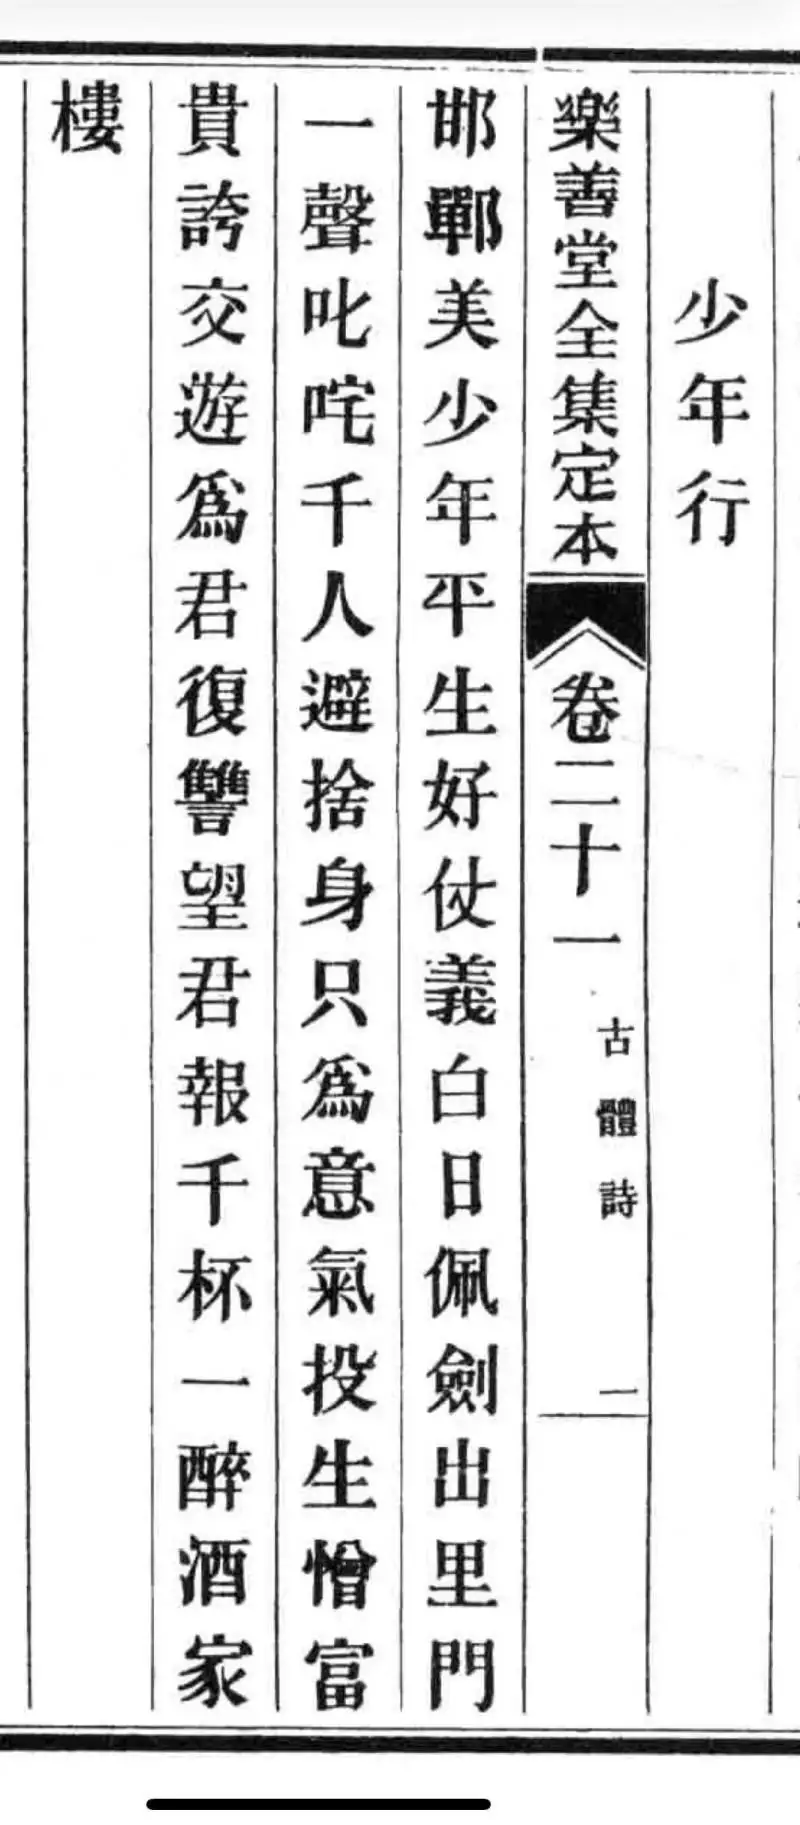 少年行
樂善堂全集定本 卷二十一 古體詩 二
邯鄲美少年平生好仗義白日佩劍出里門
一聲叱咤千人避捨身只為意氣投生憎富
貴誇交遊為君復讐望君報千杯一醉酒家
樓